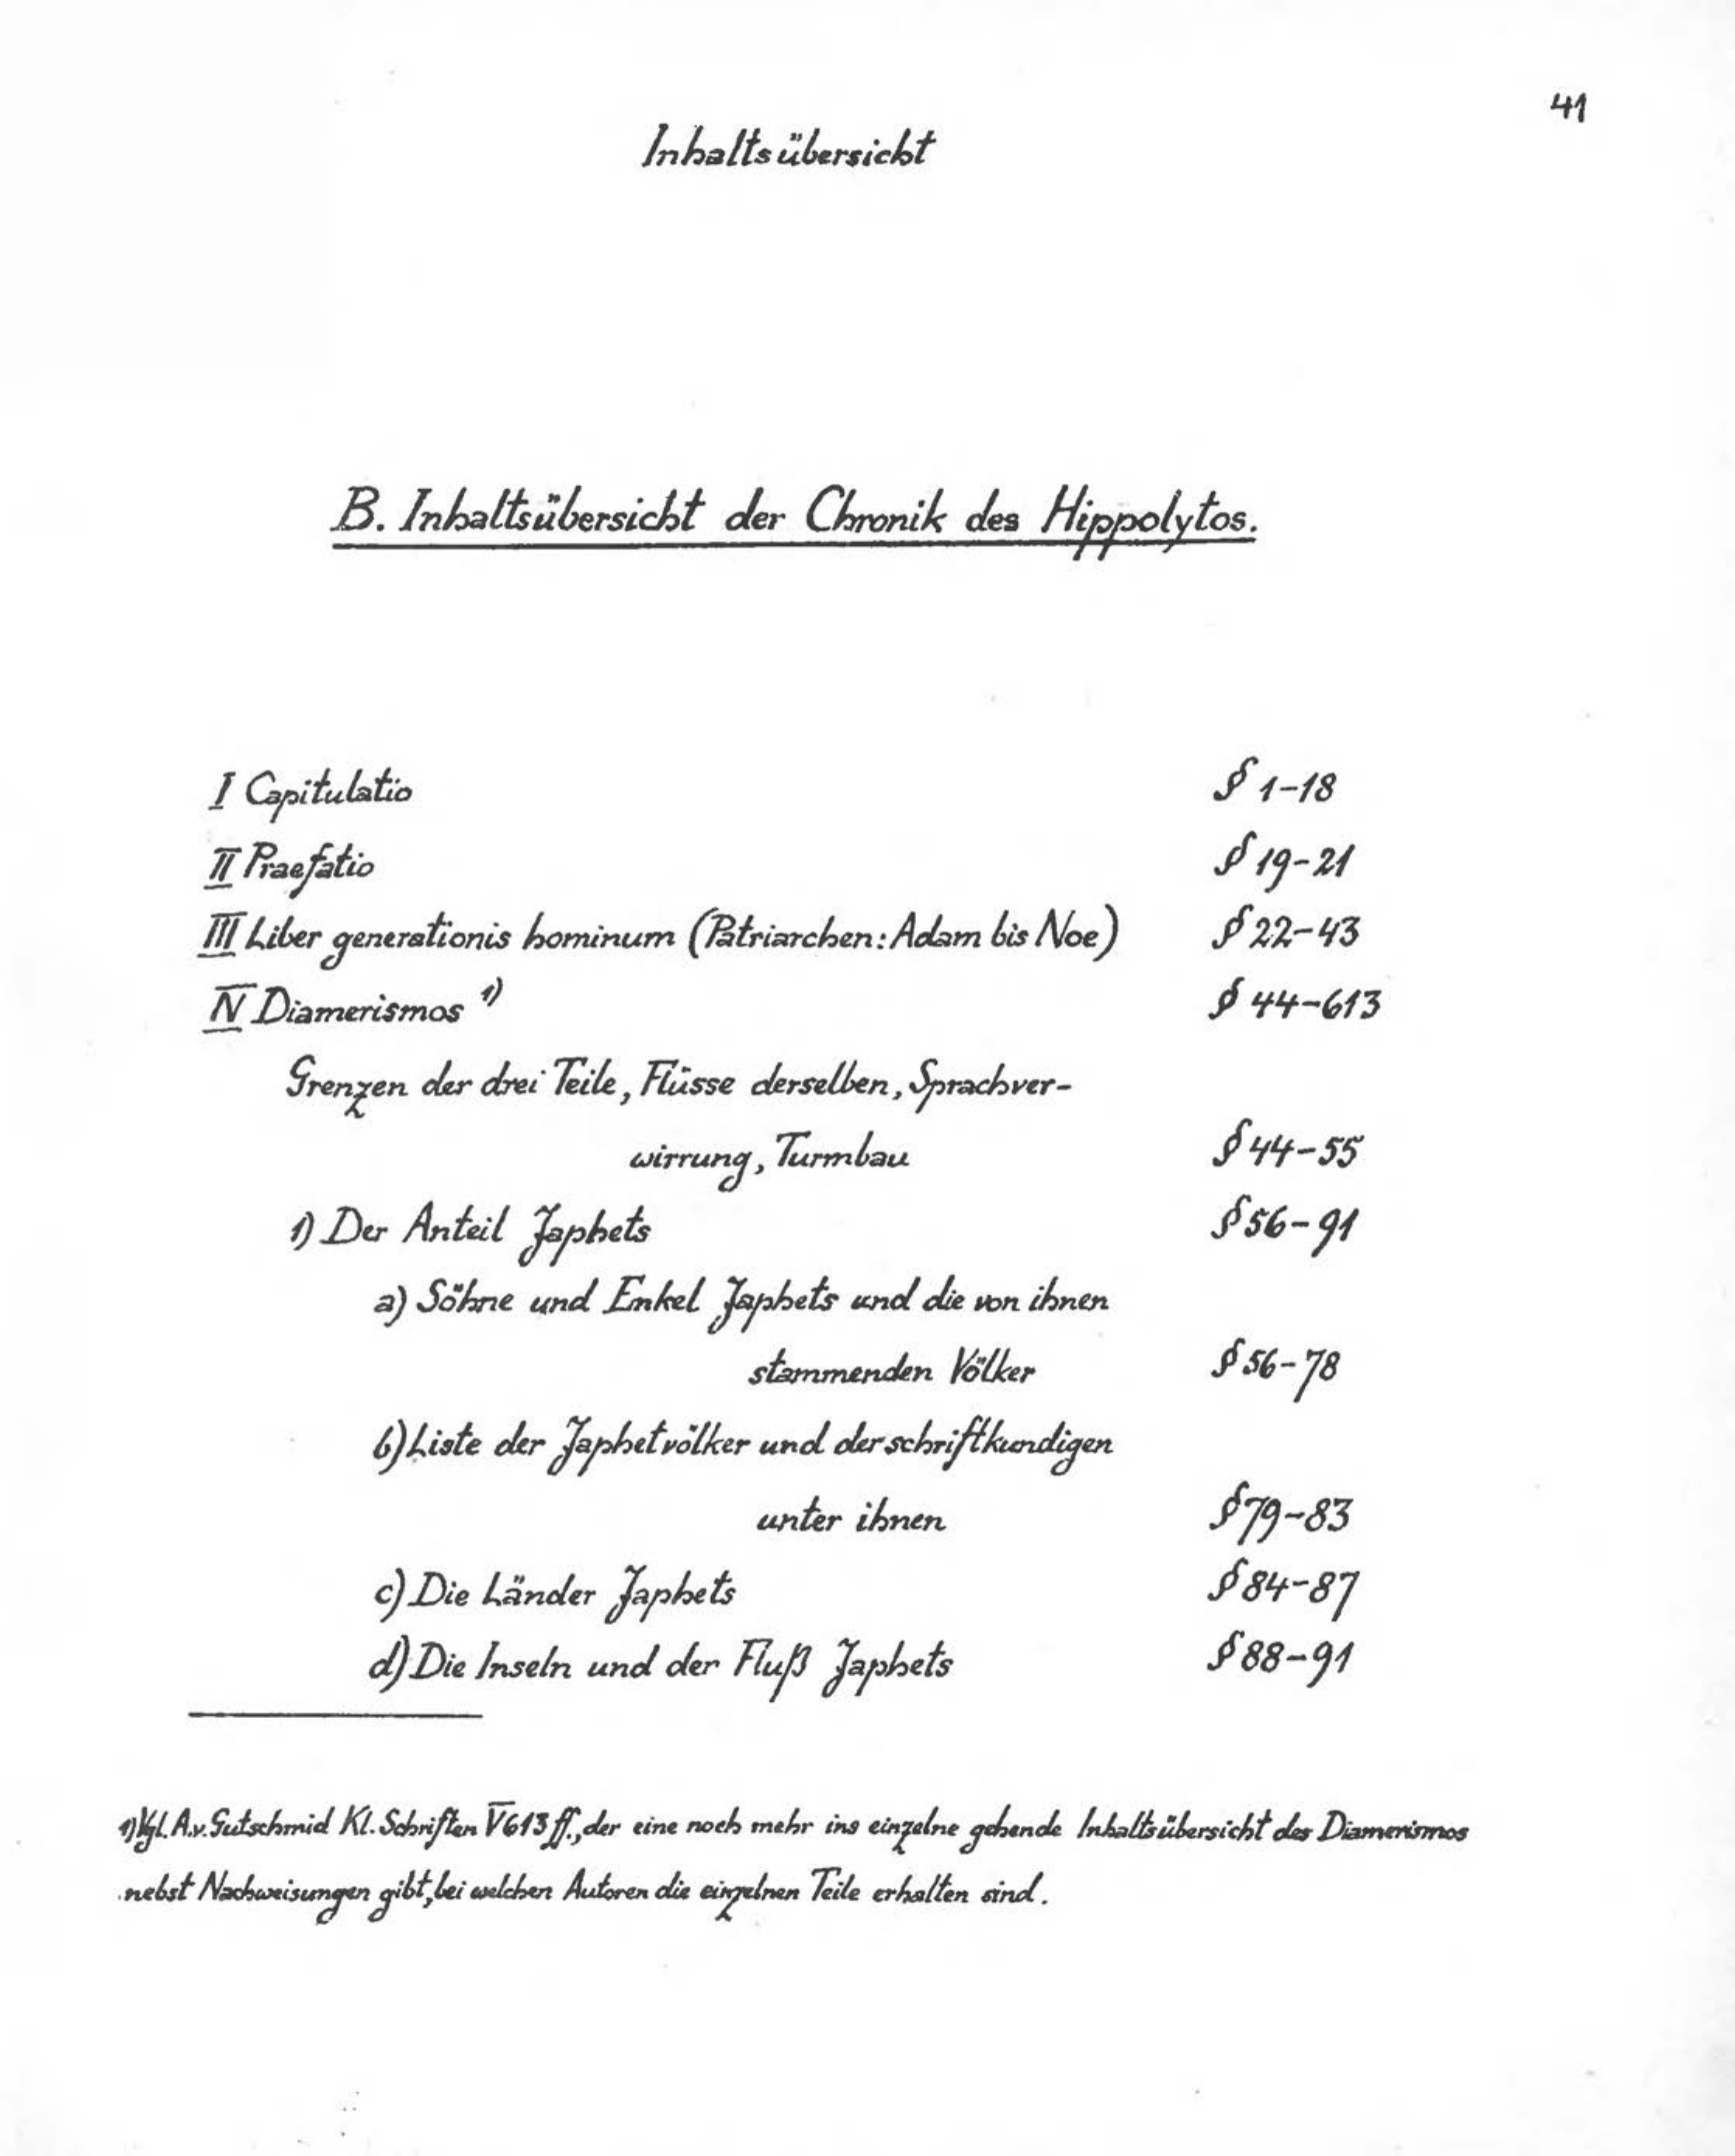 41
Inhaltsübersicht
B. Inhaltsübersicht der Chronik des Hippolytos.
I Capitulatio § 1-18
II Praefatio § 19-21
III Liber generationis hominum (Patriarchen: Adam bis Noe) § 22-43
IV Diamerismos 1) § 44-613
Grenzen der drei Teile, Flüsse derselben, Sprachver-
wirrung, Turmbau § 44-55
1) Der Anteil Japhets § 56-91
a) Söhne und Enkel Japhets und die von ihnen
stammenden Völker § 56-78
b) Liste der Japhetvölker und der schriftkundigen
unter ihnen § 79-83
c) Die Länder Japhets § 84-87
d) Die Inseln und der Fluß Japhets § 88-91
1) Vgl. A.v. Gutschmid Kl. Schriften V 613 ff., der eine noch mehr ins einzelne gehende Inhaltsübersicht des Diamerismos
nebst Nachweisungen gibt, bei welchen Autoren die einzelnen Teile erhalten sind.